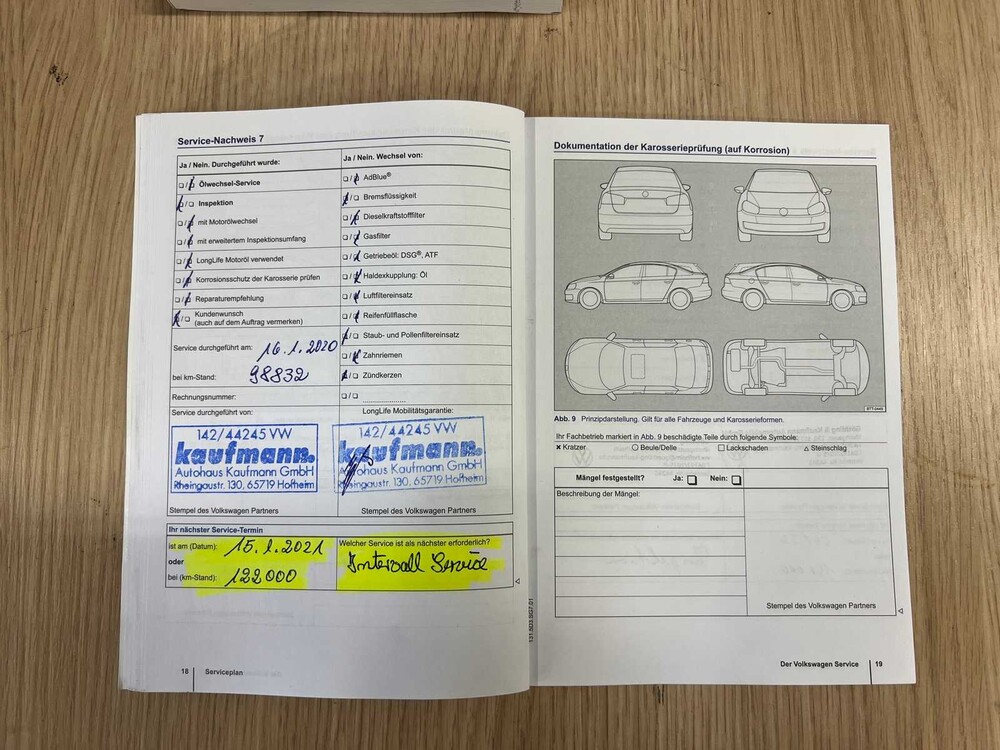 Service-Nachweis 7
Ja / Nein. Durchgeführt wurde:
Ölwechsel-Service
Inspektion
mit Motorölwechsel
mit erweitertem Inspektionsumfang
LongLife Motoröl verwendet
Korrosionsschutz der Karosserie prüfen
Reparaturempfehlung
Kundenwunsch
(auch auf dem Auftrag vermerken)
Service durchgeführt am: 16.1.2020
bei km-Stand: 98832
Rechnungsnummer:
Service durchgeführt von:
142/44245 VW
kaufmann.
Autohaus Kaufmann GmbH
Rheingaustr. 130, 65719 Hofheim
Stempel des Volkswagen Partners
Ja / Nein. Wechsel von:
AdBlue®
Bremsflüssigkeit
Dieselkraftstofffilter
Gasfilter
Getriebeöl: DSG®, ATF
Haldexkupplung: Öl
Luftfiltereinsatz
Reifenfüllflasche
Staub- und Pollenfiltereinsatz
Zahnriemen
Zündkerzen
LongLife Mobilitätsgarantie:
142/44245 VW
kaufmann.
Autohaus Kaufmann GmbH
Rheingaustr. 130, 65719 Hofheim
Stempel des Volkswagen Partners
Ihr nächster Service-Termin
ist am (Datum): 15.1.2021
oder
bei (km-Stand): 122000
Welcher Service ist als nächster erforderlich?
Intervall Service
18 Serviceplan
Dokumentation der Karosserieprüfung (auf Korrosion)
B7T-0449
Abb. 9 Prinzipdarstellung. Gilt für alle Fahrzeuge und Karosserieformen.
Ihr Fachbetrieb markiert in Abb. 9 beschädigte Teile durch folgende Symbole:
× Kratzer ○ Beule/Delle □ Lackschaden △ Steinschlag
Mängel festgestellt? Ja: □ Nein: □
Beschreibung der Mängel:
Stempel des Volkswagen Partners
131.5D3.SG7.01
Der Volkswagen Service 19